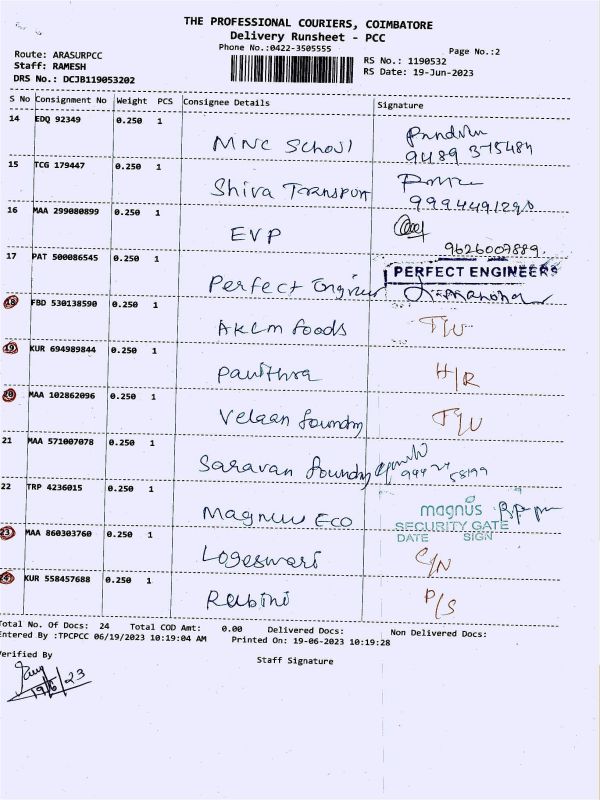 THE PROFESSIONAL COURIERS, COIMBATORE
Delivery Runsheet - PCC
Phone No.:0422-3505555 Page No.:2
Route: ARASURPCC RS No.: 1190532
Staff: RAMESH RS Date: 19-Jun-2023
DRS No.: DCJB119053202
S No Consignment No Weight PCS Consignee Details Signature
14 EDQ 92349 0.250 1 MNC School
9489 375484
15 TCG 179447 0.250 1 Shiva Transport
9994491290
16 MAA 299080899 0.250 1 EVP
9626007889.
17 PAT 500086545 0.250 1 Perfect Engineer PERFECT ENGINEERS
18 FBD 530138590 0.250 1 AKLM foods T/W
19 KUR 694989844 0.250 1 Pavithra H/R
20 MAA 102862096 0.250 1 Velaan foundry T/W
21 MAA 571007078 0.250 1 Saravan foundry
22 TRP 4236015 0.250 1 Magnus Eco magnus
SECURITY GATE
DATE SIGN
23 MAA 860303760 0.250 1 Logeswari C/N
24 KUR 558457688 0.250 1 Rabini P/S
Total No. Of Docs: 24 Total COD Amt: 0.00 Delivered Docs: Non Delivered Docs:
Entered By :TPCPCC 06/19/2023 10:19:04 AM Printed On: 19-06-2023 10:19:28
Verified By Staff Signature
19/6/23